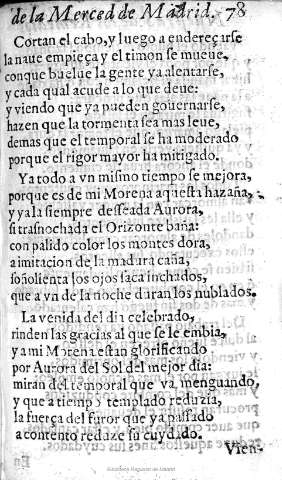 de la Merced de Madrid. 78
Cortan el cabo, y luego a endereçarse
la naue empieça y el timon se mueue,
con que buelue la gente ya alentarse,
y cada qual acude a lo que deue:
y viendo que ya pueden gouernarse,
hazen que la tormenta sea mas leue,
demas que el temporal se ha moderado
porque el rigor mayor ha mitigado.
Ya todo a vn mismo tiempo se mejora,
porque es de mi Morena aquesta hazaña,
y ya la siempre desseada Aurora,
si trasnochada el Orizonte baña:
con palido color los montes dora,
a imitacion de la madura caña,
soñolienta los ojos saca inchados,
que a vn de la noche duran los nublados.
La venida del dia celebrado,
rinden las gracias al que se le embia,
y a mi Morena estan glorificando
por Aurora del Sol del mejor dia:
miran del temporal que va menguando,
y que a tiempo templado reduzia,
la fuerça del furor que ya passado
a contento reduze su cuydado.
Vien-